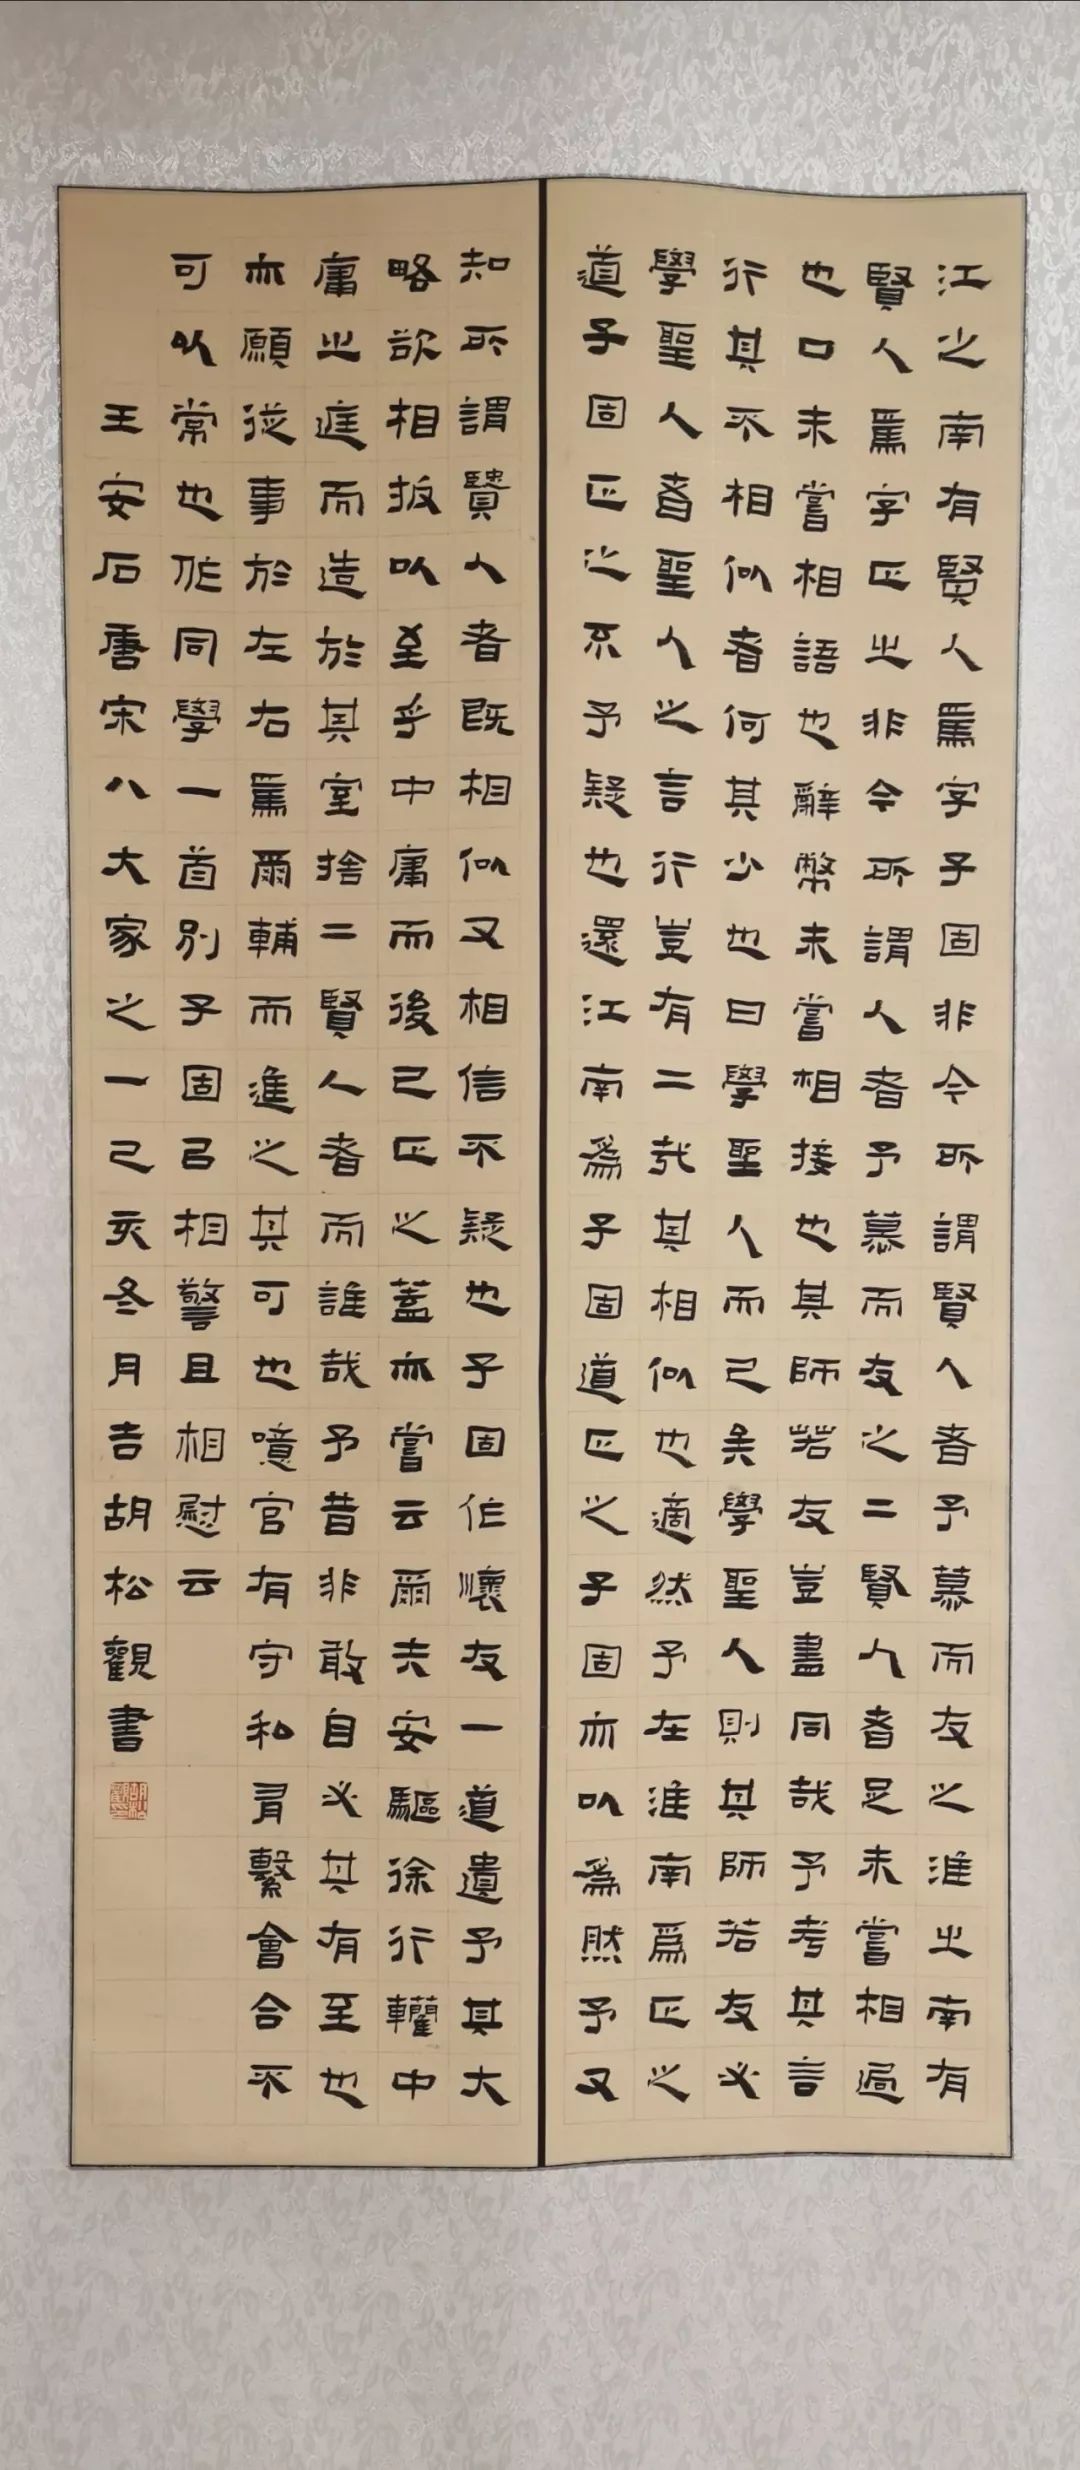 江之南有賢人焉字子固非今所謂賢人者予慕而友之淮之南有
賢人焉字正之非今所謂人者予慕而友之二賢人者足未嘗相過
也口未嘗相語也辭幣未嘗相接也其師若友豈盡同哉予考其言
行其不相似者何其少也曰學聖人而已矣學聖人則其師若友必
學聖人者聖人之言行豈有二哉其相似也適然予在淮南爲正之
道子固正之不予疑也還江南爲子固道正之子固亦以爲然予又
知所謂賢人者既相似又相信不疑也子固作懷友一道遺予其大
略欲相扳以至乎中庸而後已正之蓋亦嘗云爾夫安驅徐行轥中
庸之庭而造於其室捨二賢人者而誰哉予昔非敢自必其有至也
亦願從事於左右焉爾輔而進之其可也噫官有守私有繫會合不
可以常也作同學一首別子固以相警且相慰云
王安石唐宋八大家之一己亥冬月吉胡松觀書